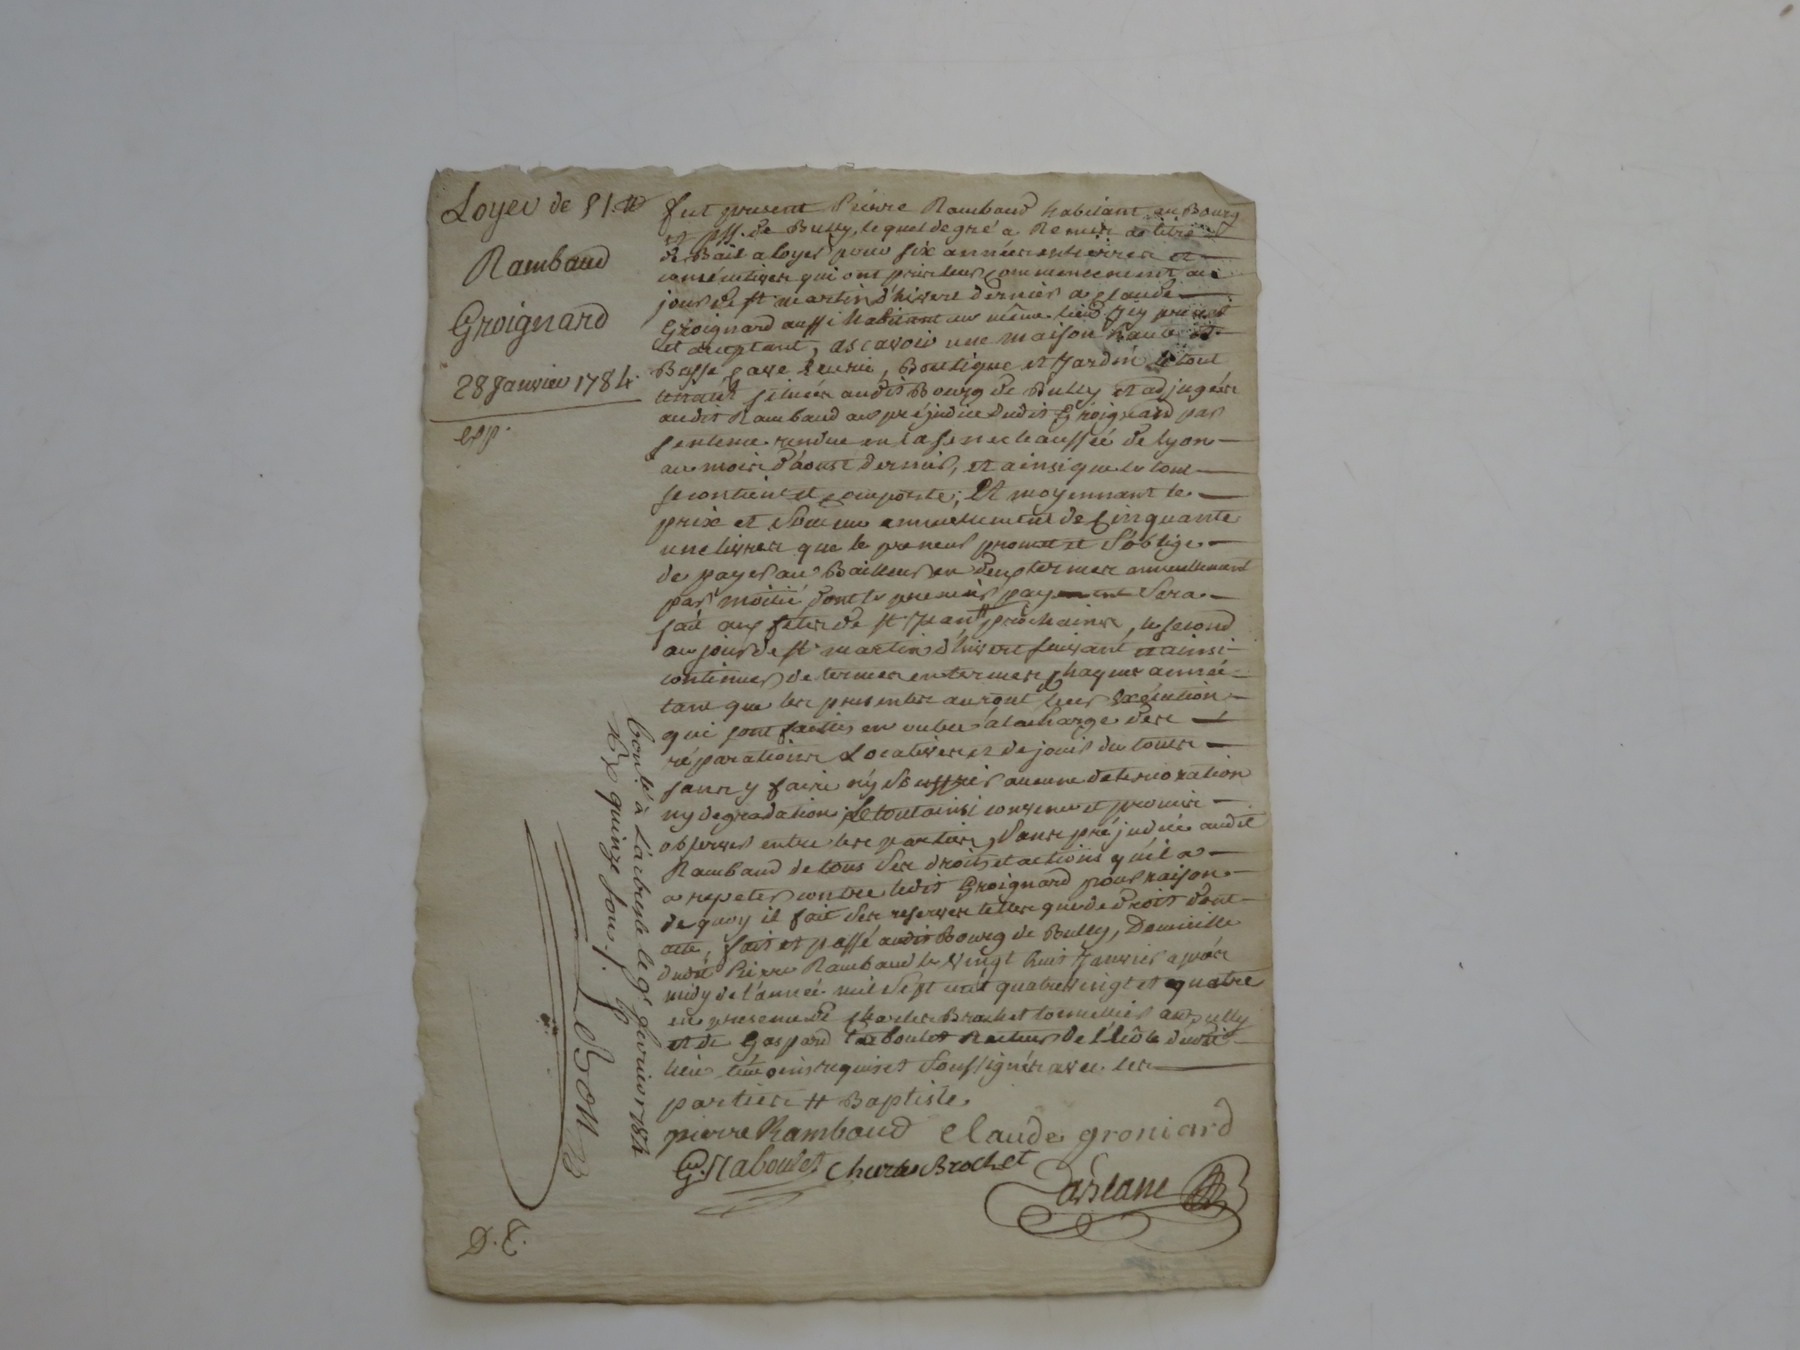 Loyer de 51 ₶
Rambaud
Groignard
28 Janvier 1784.
exp.
fut present Pierre Rambaud habitant au Bourg
et pss. de Bully, lequel de gré a Remis a titre
de Bail a loyer pour six années entierres et
consécutives qui ont pris leur commencement au
jour de st martin d'hivert dernier a Claude
Groignard aussi habitant au même lieu icy présent
et acceptant, ascavoir une maison haute et
Basse, cave Ecurie, Boutique et Jardin le tout
situés audit Bourg de Bully et adjugés
audit Rambaud au préjudice dudit Groignard par
sentence rendue en la senechaussée de Lyon
au mois d'aoust dernier, et ainsi que le tout
se contient et comporte; Et moyennant le
prix et somme annuellement de Cinquante
une livres que le preneur promet et s'oblige
de payer au Bailleur en deux termes annuellement
par moitié dont le premier payement sera
fait aux fetes de st Jean # prochaines, le second
au jour de st martin d'hivert suivant et ainsi
continuer de termes en termes chaque année
tant que les presentes auront leur Exécution
qui sont faittes en outre à la charge des
réparations Locatives et de jouir du tout
sans y faire ny souffrir aucune deterioration
ny degradation; Le tout ainsi convenu et promis
observer entre les parties, sans préjudice audit
Rambaud de tous ses droits et actions qu'il a
a repeter contre ledit Groignard pour raison
de quoy il fait ses reserves telles que de Droit dont
acte, fait et passé audit Bourg de Bully, Domicille
dudit Pierre Rambaud le Vingt huit Janvier après
midy de l'année mil sept cent quatre vingt et quatre
en presence de Charles Brochet tonnellier au Bully
et de Gaspard Naboulet Recteur de l'Ecôle dudit
lieu témoins requis et soussignés avec les
parties # Baptiste.
pierre Rambaud Claude groniard
G. Naboulet Charles Brochet
Contlé à L'arbresle le 9e fevrier 1784
Rx quinze sous /.
LeBon
D. E.